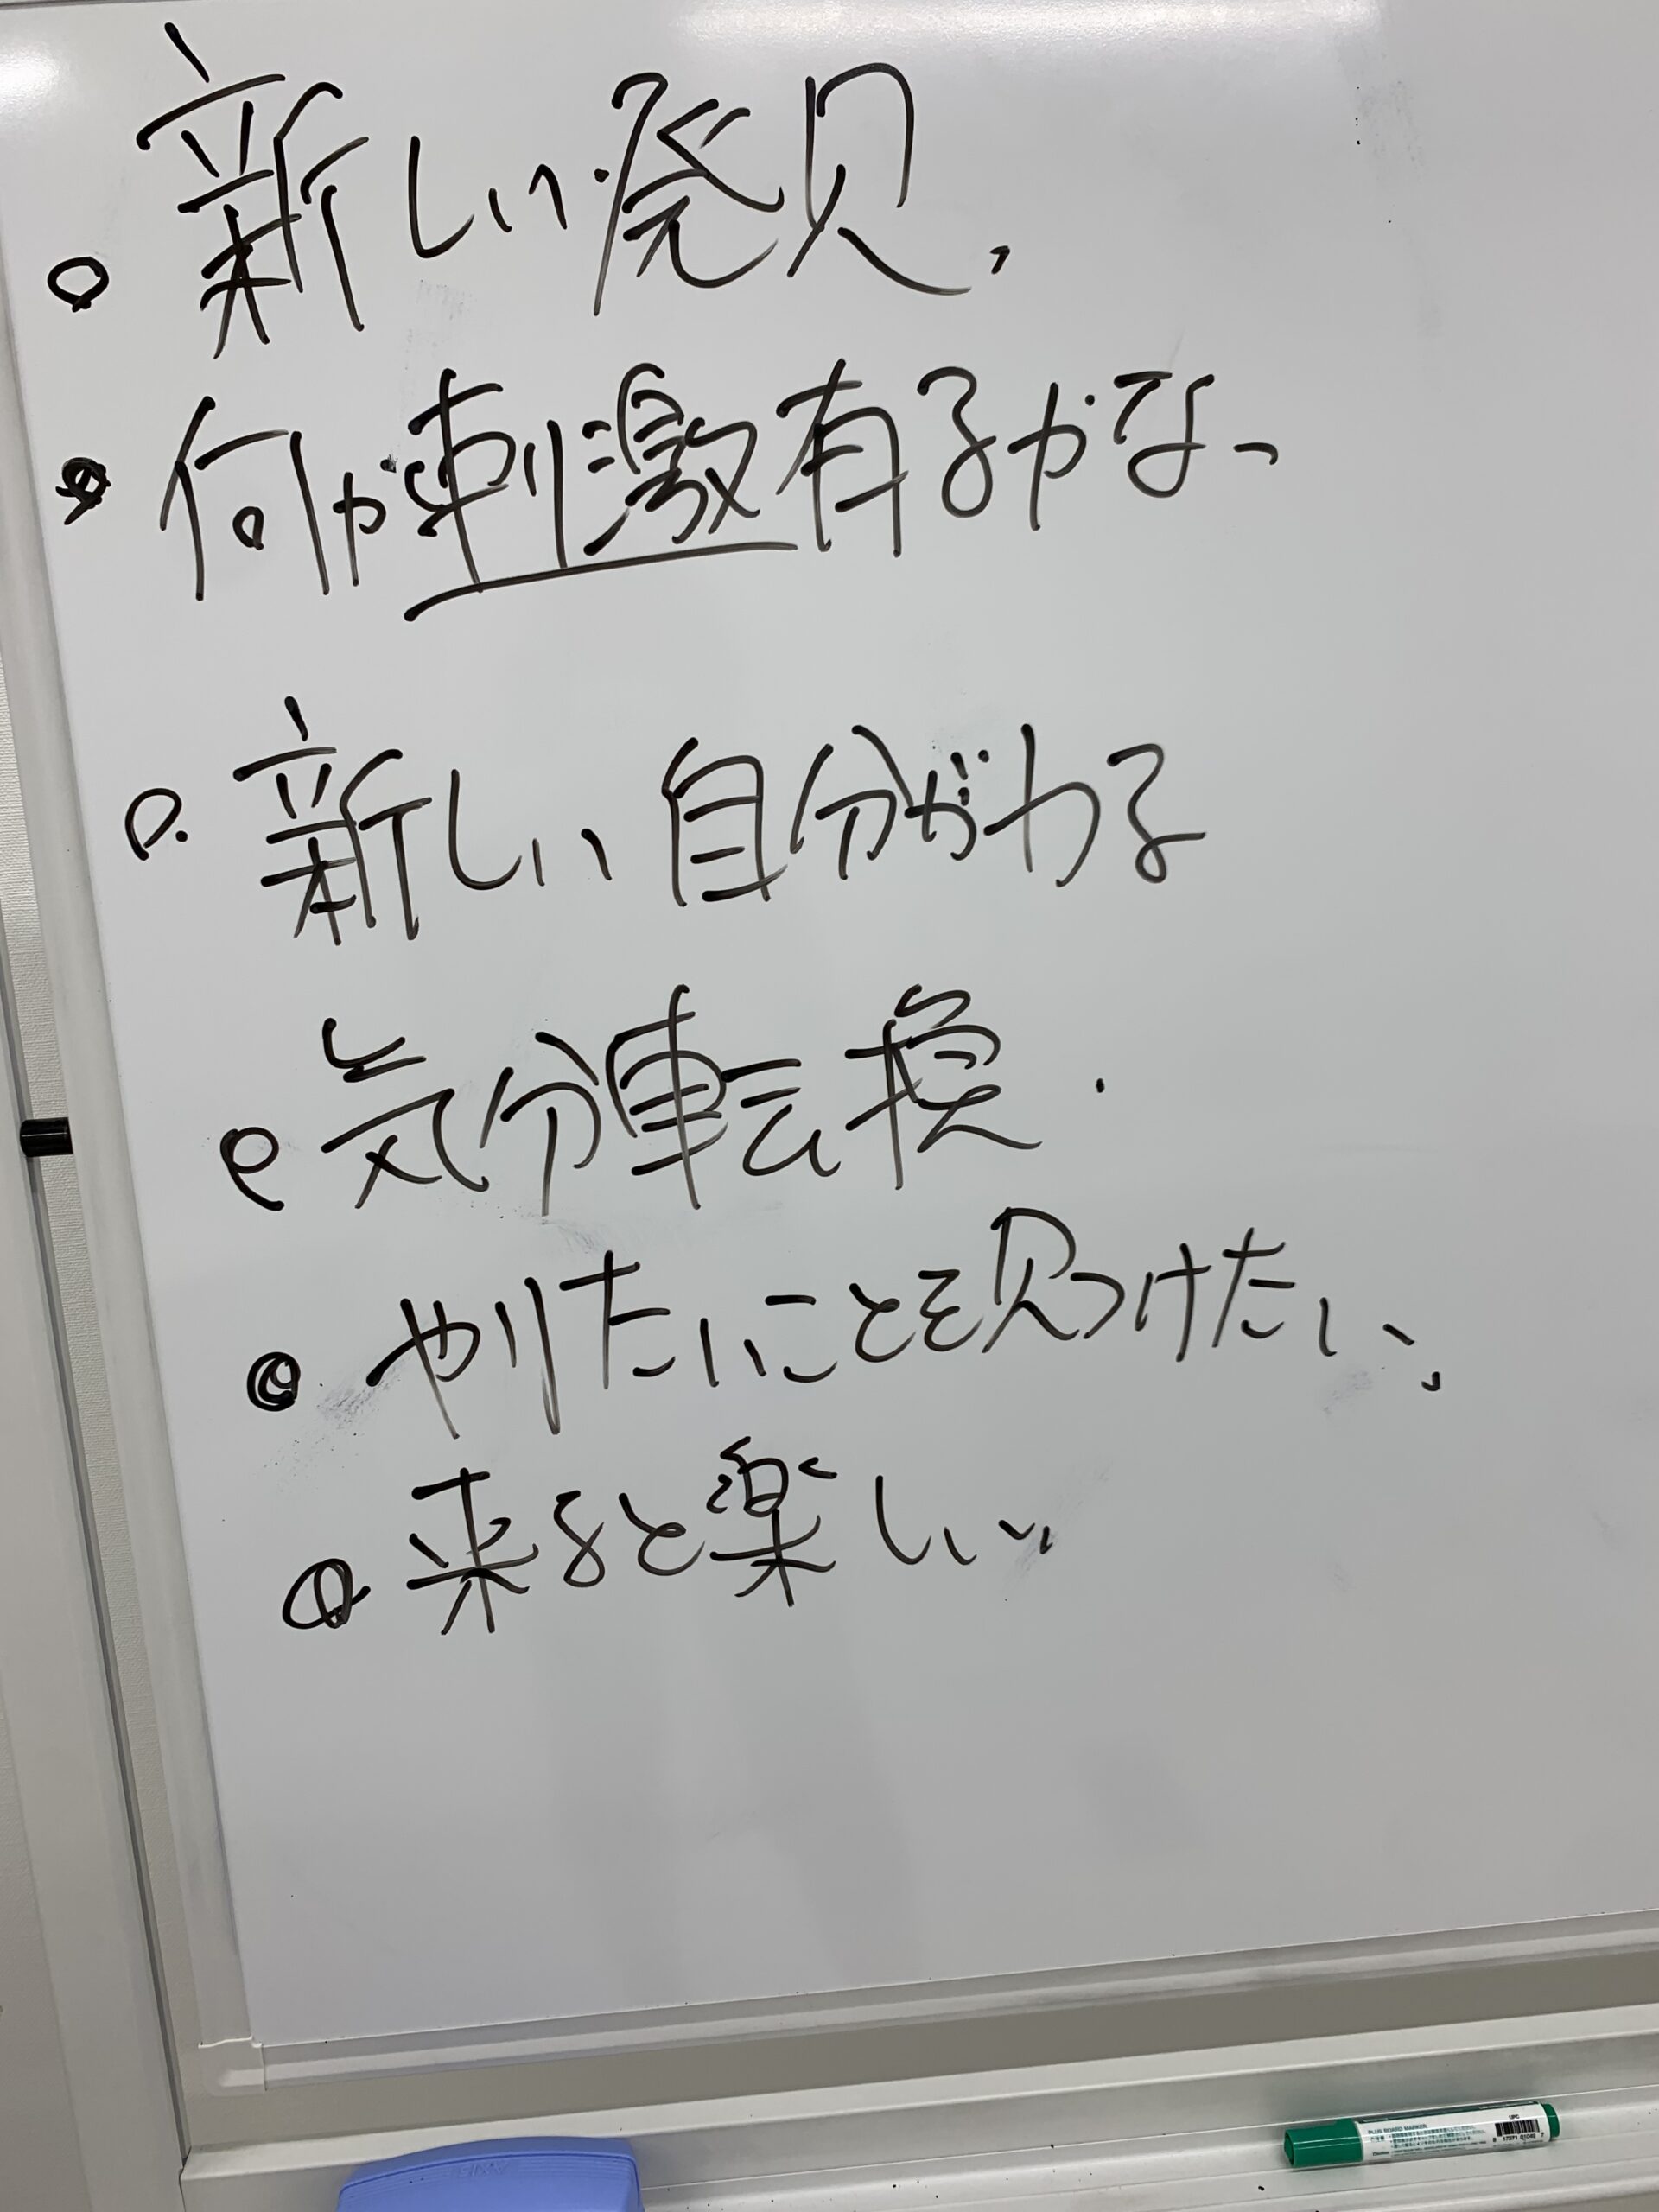 新しい発見
何か刺激有るかな、
新しい自分がわる
気分転換
やりたいことを見つけたい、
来ると楽しい
PLUS BOARD MARKER
UPC